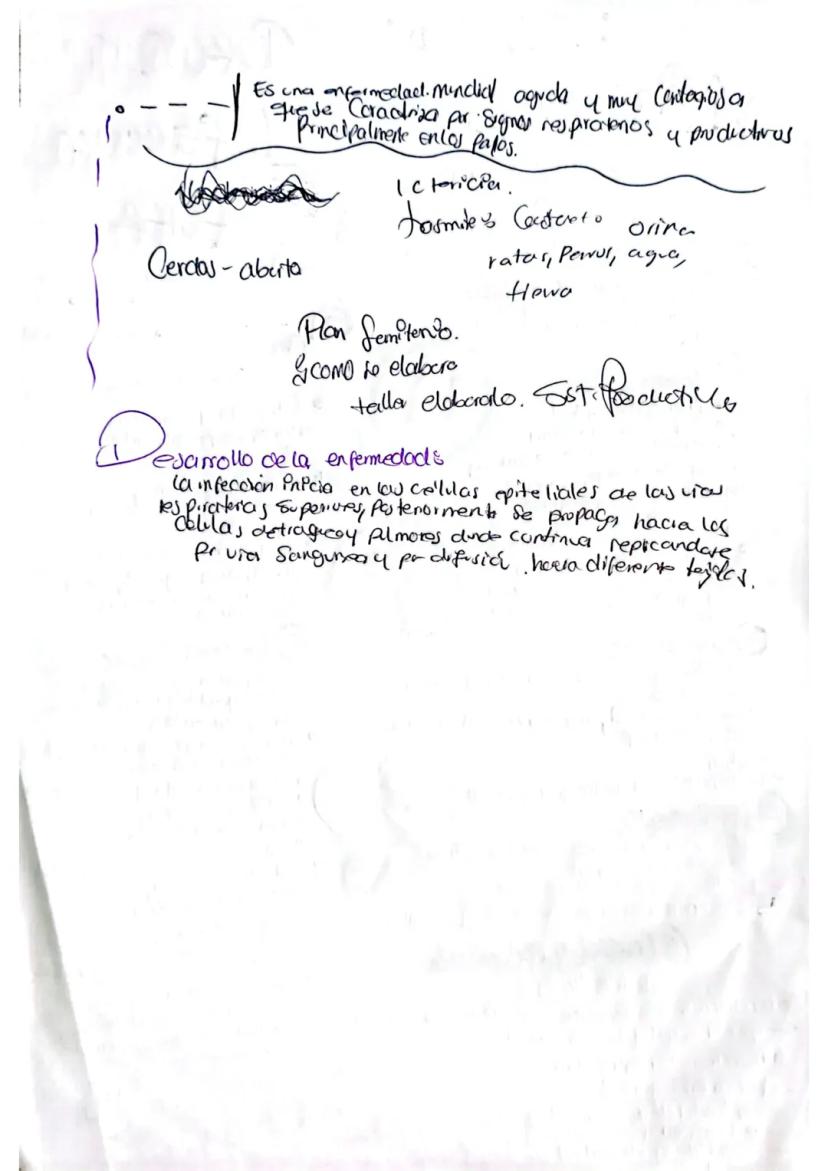 Es una enfermedad. mundial aguda y muy contagiosa
que se Caracteriza por signos respiratorios y productivos
Principalmente en los Pollos.
Ictericia.
orina
ratas, Perros, agua,
Cerdas - abierta
Plan Semestre
COMO se elaboro
taller elaborado. Sist. Productivos
1 Desarrollo de la enfermedad:
La infección inicia en las células epiteliales de las vias
respiratorias superiores, Posteriormente se propaga hacia las
Celulas de traquea y pulmones donde continua repicandose
Por via Sanguinea y por difusión hacia diferente tejidos.